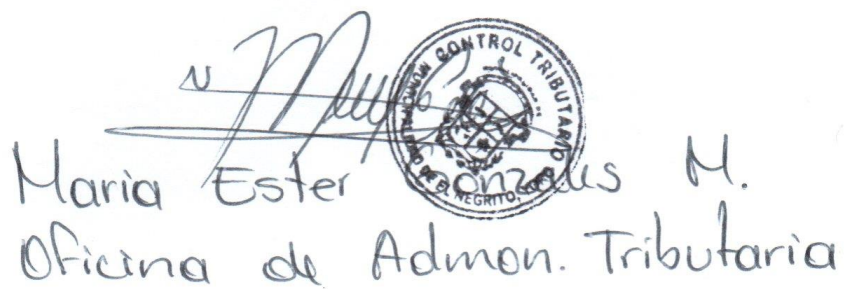 CONTROL TRIBUTARIO
DE EL NEGRITO, YORO
Maria Ester Gonzales M.
Oficina de Admon. Tributaria